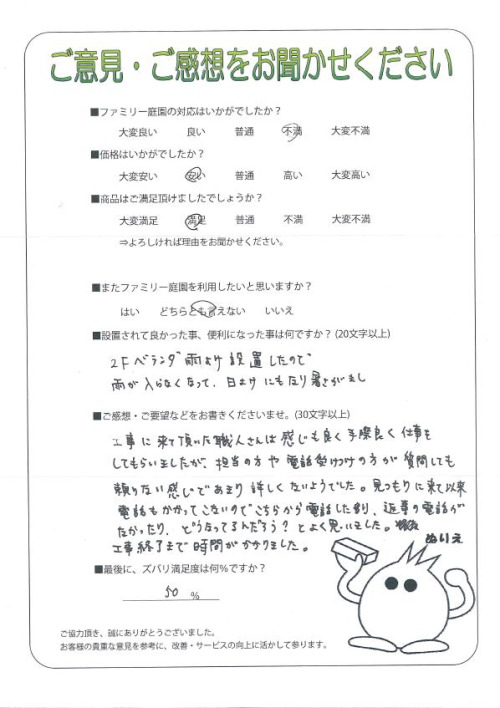 ご意見・ご感想をお聞かせください
■ファミリー庭園の対応はいかがでしたか？
大変良い 良い 普通 不満 大変不満
■価格はいかがでしたか？
大変安い 安い 普通 高い 大変高い
■商品はご満足頂けましたでしょうか？
大変満足 満足 普通 不満 大変不満
⇒よろしければ理由をお聞かせください。
■またファミリー庭園を利用したいと思いますか？
はい どちらとも言えない いいえ
■設置されて良かった事、便利になった事は何ですか？(20文字以上)
2Fベランダ雨よけ設置したので
雨が入らなくなって、日よけにもなり暑さがまし
■ご感想・ご要望などをお書きくださいませ。(30文字以上)
工事に来て頂いた職人さんは感じも良く手際良く仕事を
してもらいましたが、担当の方や電話受けつけの方が質問しても
頼りない感じであまり詳しくないようでした。見つもりに来て以来
電話もかかってこないのでこちらから電話したり、返事の電話が
なかったり、どうなってるんだろう？とよく思いました。
工事終了まで時間がかかりました。
ぬりえ
■最後に、ズバリ満足度は何％ですか？
50 %
ご協力頂き、誠にありがとうございました。
お客様の貴重な意見を参考に、改善・サービスの向上に活かして参ります。